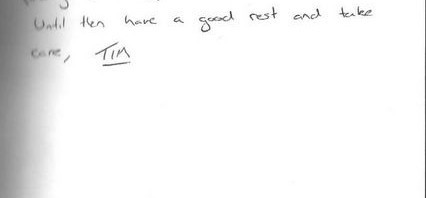 Until then have a good rest and take
care, TIM